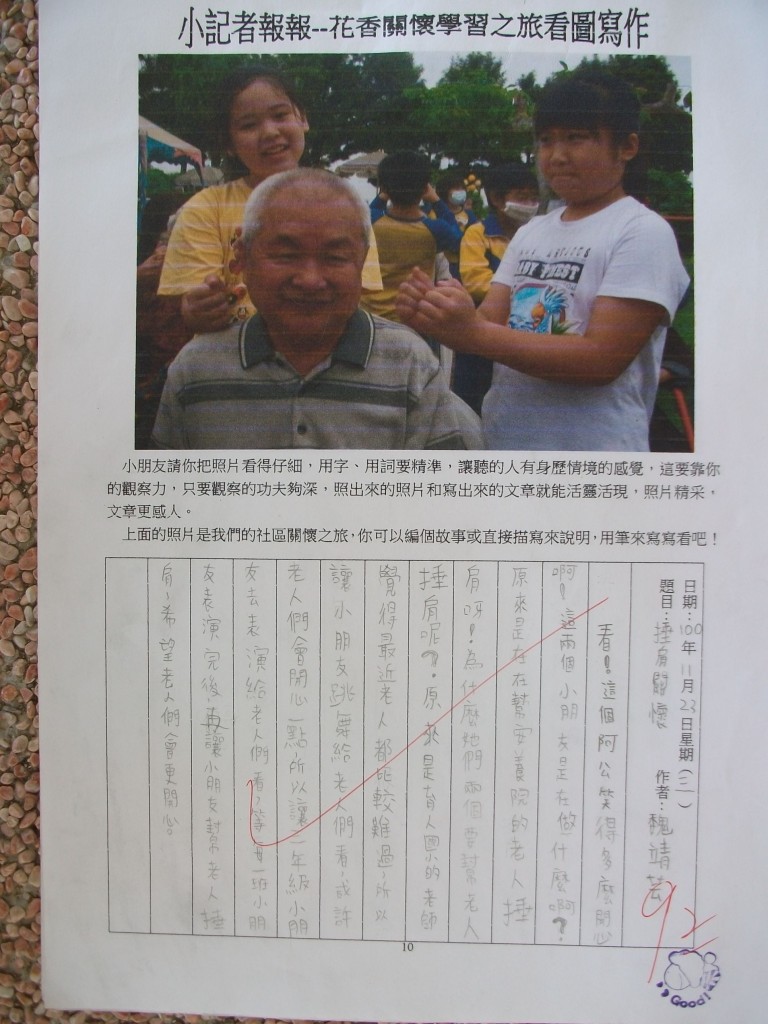 小記者報報--花香關懷學習之旅看圖寫作
小朋友請你把照片看得仔細，用字、用詞要精準，讓聽的人有身歷情境的感覺，這要靠你
的觀察力，只要觀察的功夫夠深，照出來的照片和寫出來的文章就能活靈活現，照片精采，
文章更感人。
上面的照片是我們的社區關懷之旅，你可以編個故事或直接描寫來說明，用筆來寫寫看吧！
日期：100年11月23日星期（三）
題目：捶肩關懷 作者：魏靖芸
看！這個阿公笑得多麼開心
啊！這兩個小朋友是在做什麼啊？
原來是在在幫安養院的老人捶
肩呀！為什麼她們兩個要幫老人
捶肩呢？原來是育人國小的老師
覺得最近老人都比較難過，所以
讓小朋友跳舞給老人們看，或許
老人們會開心一點，所以讓二年級小朋
友去表演給老人們看，等每一班小朋
友表演完後，再讓小朋友幫老人捶
肩，希望老人們會更開心。
92
Good!
10